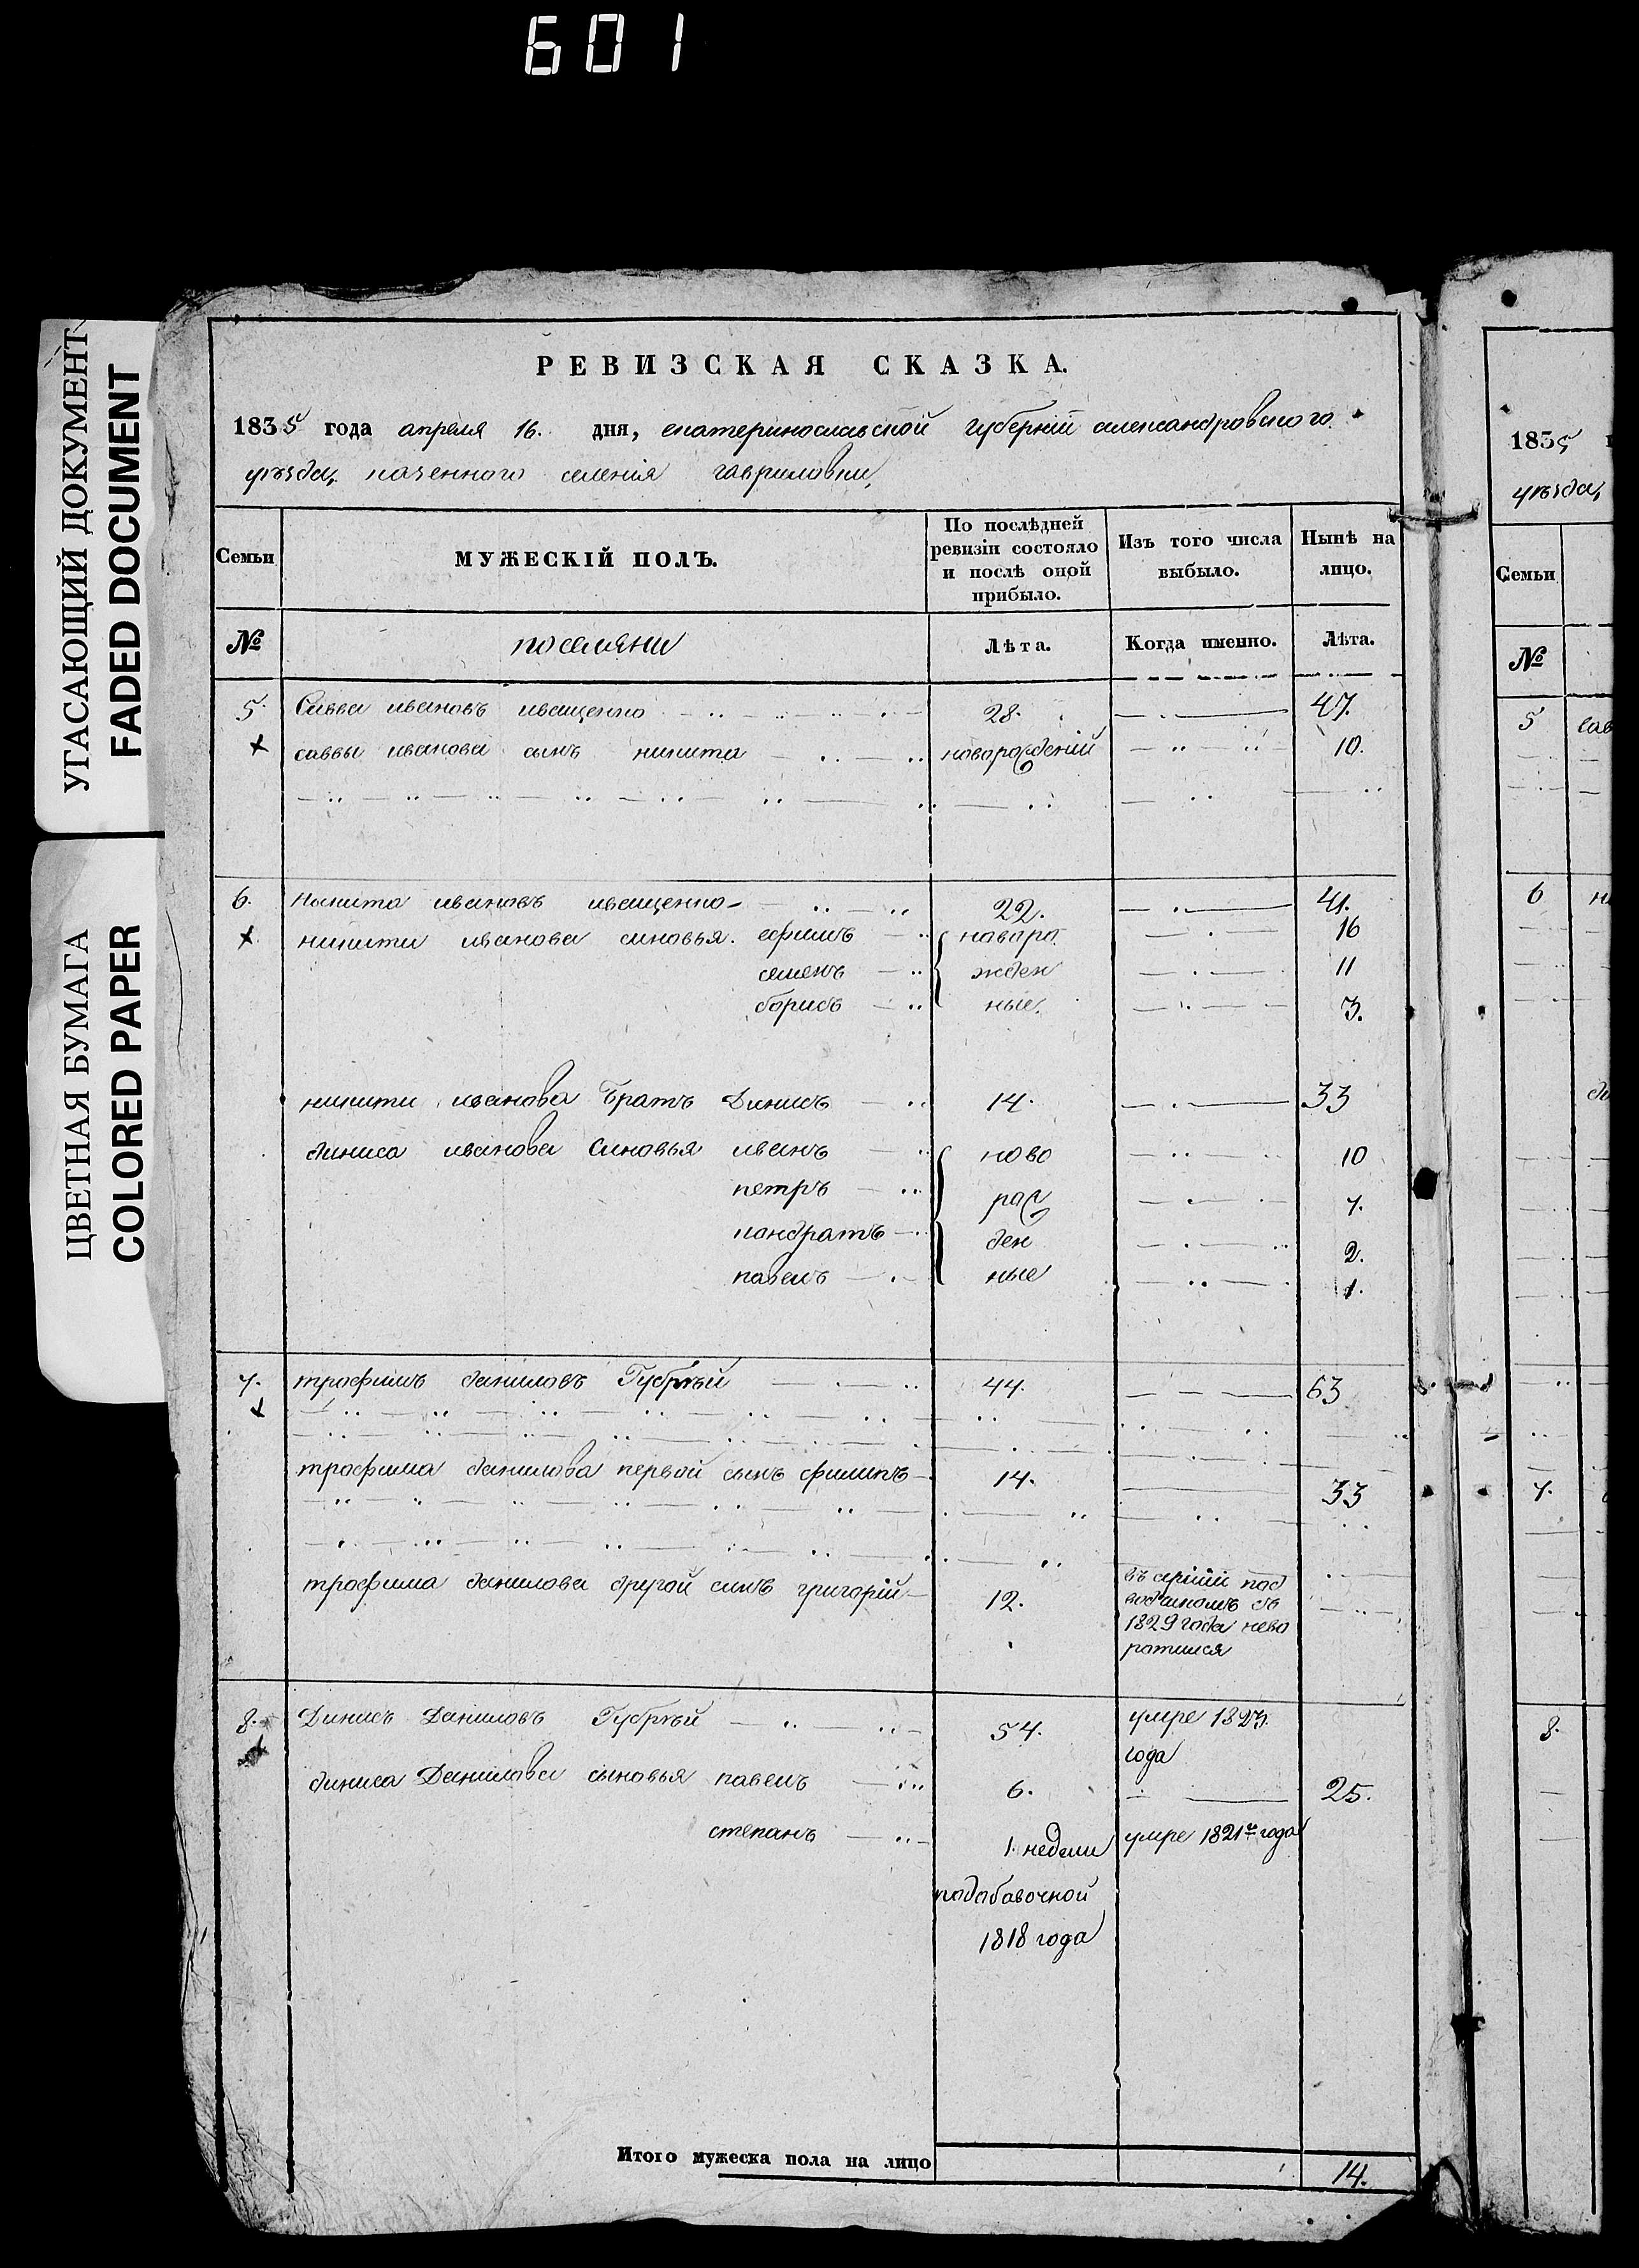 601
УГАСАЮЩИЙ ДОКУМЕНТ
FADED DOCUMENT
ЦВЕТНАЯ БУМАГА
COLORED PAPER
РЕВИЗСКАЯ СКАЗКА.
1835 года апреля 16. дня, екатеринославской губерніи александровского
уѣзда, казенного селенія гавриловки,
Семьи
МУЖЕСКІЙ ПОЛЪ.
По послѣдней ревизіи состояло и послѣ оной прибыло.
Изъ того числа выбыло.
Нынѣ на лицо.
№ поселяни Лѣта. Когда именно. Лѣта.
5. Савва ивановъ иващенко 28. 47.
саввы иванова сынъ никита новорожденій 10.
6. Никита ивановъ иващенко 22. 41.
никити иванова синовья. ефимъ наваро 16
семенъ жден 11
борисъ ные. 3.
никити иванова Братъ Динисъ 14. 33
диниса иванова Синовья иванъ ново 10
петръ рож 7.
кондратъ ден 2.
павелъ ные 1.
7. трофимъ даниловъ Губрѣй 44. 63
трофима данилова первой сынъ филипъ 14. 33
трофима данилова другой синъ григорій 12.
1829 года нево
ратился
8. Динисъ Даниловъ Губрѣй 54. умре 1827.
года
диниса Данилова сыновья павелъ 6. 25.
степанъ 1. недели умре 1821г года
подобавочной
1818 года
Итого мужеска пола на лицо 14.
1835
уѣзда,
Семьи
№
5 сав
6 н
7.
8.